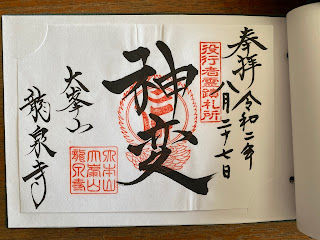 奉拝
令和二年
八月二十七日
役行者霊蹟札所
神変
大本山
大峯山
龍泉寺
大峯山
龍泉寺